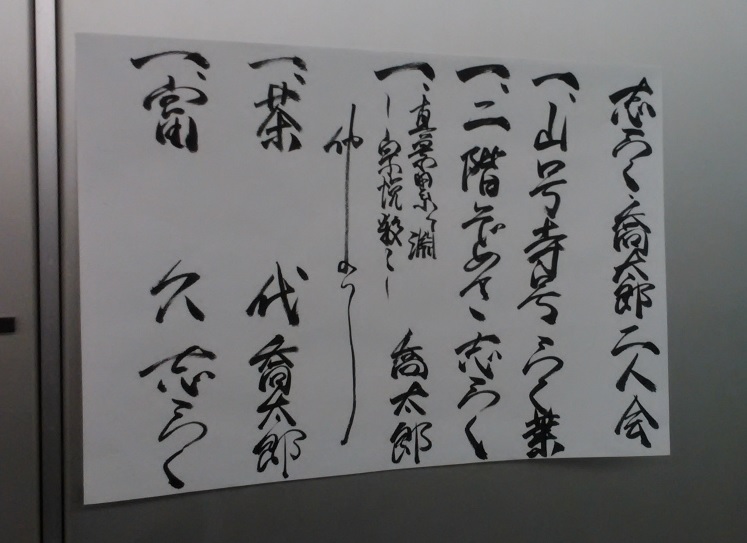 志らく・喬太郎 二人会
一、山号寺号 らく葉
一、二階ぞめき 志らく
一、真景累ヶ淵
―宗悦殺し―
喬太郎
仲入り
一、茶代 喬太郎
一、富久 志らく